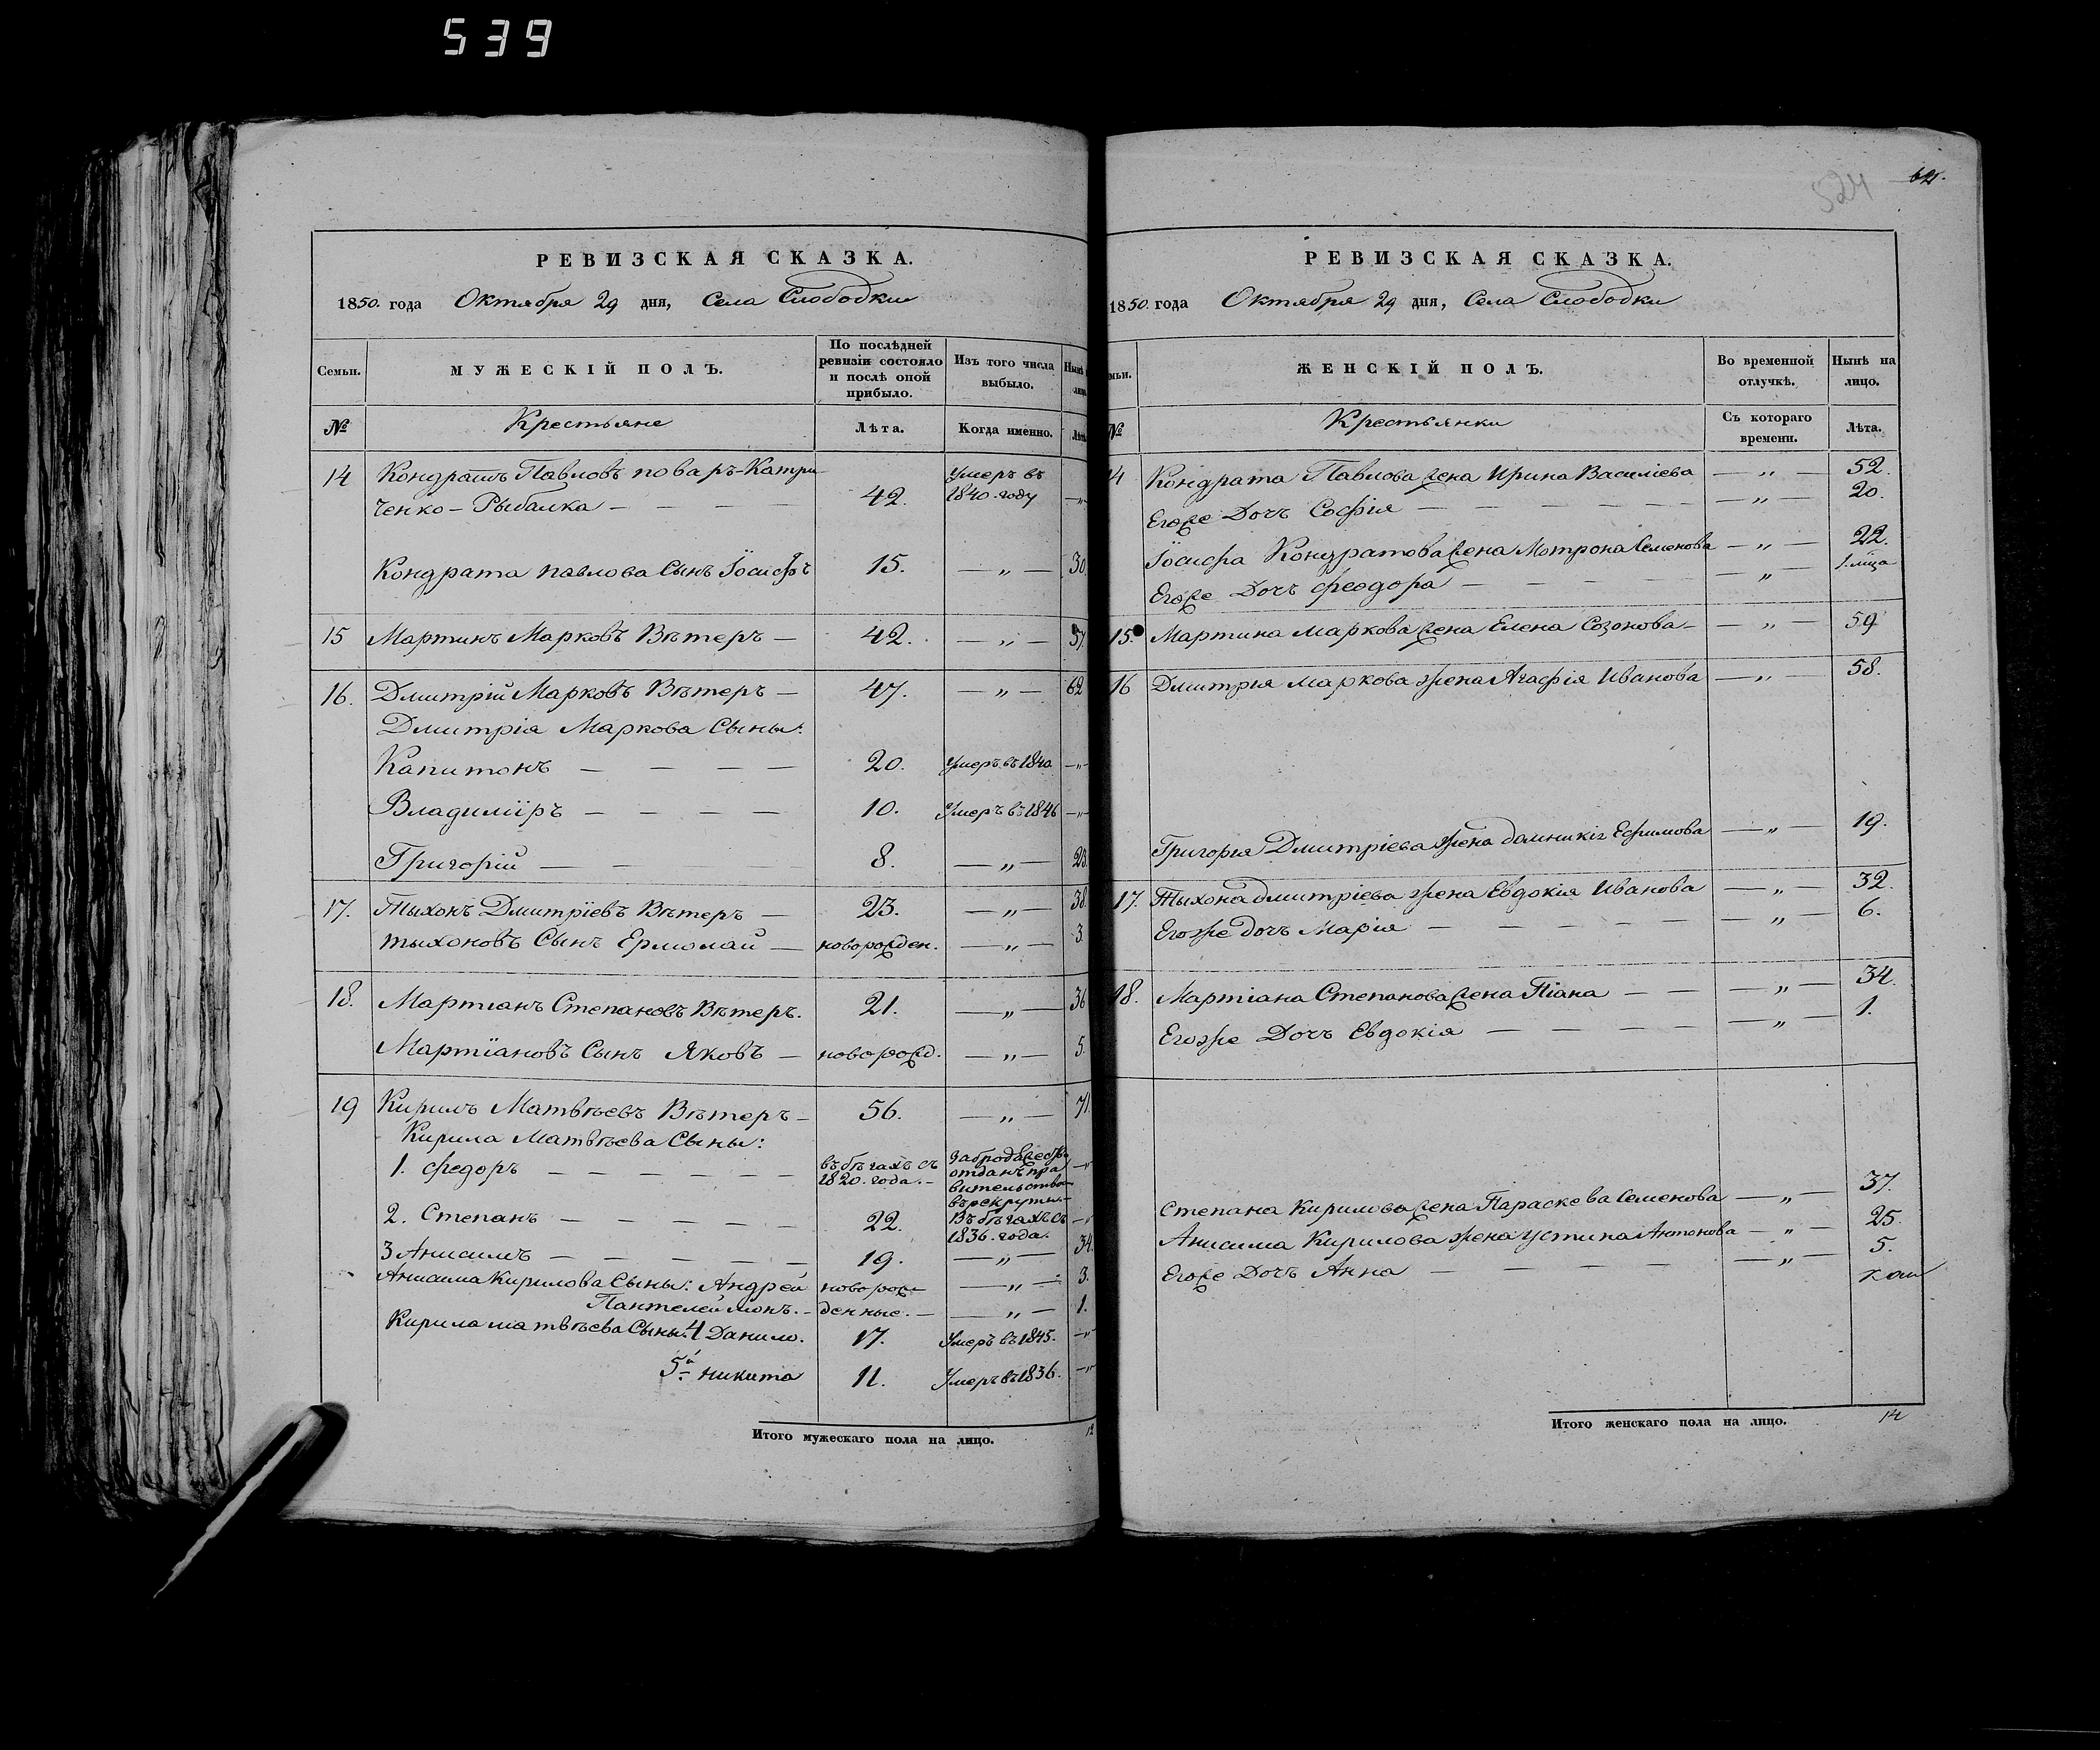 539
РЕВИЗСКАЯ СКАЗКА.
1850. года Октября 29 дня, Села Слободки
Семьи.
МУЖЕСКІЙ ПОЛЪ.
По послѣдней
ревизіи состояло
и послѣ оной
прибыло.
Изъ того числа
выбыло.
Нынѣ
лицо
№
Крестьяне
Лѣта.
Когда именно.
Лѣта
14 Кондратъ Павловъ поваръ-Катри
ченко - Рыбалка — — — — 42. Умеръ въ
1840. году —„
Кондрата павлова Сынъ Іосифъ 15. —„— 30.
15 Мартинъ Марковъ Вѣтеръ — 42. —„— 57.
16. Дмитрій Марковъ Вѣтеръ — 47. —„— 62
Дмитрія Маркова Сыны:
Капитонъ — — — — 20. Умеръ въ 1840. —„—
Владиміръ — — — — 10. Умеръ въ 1846 —„—
Григорій — — 8. —„— 23.
17. Тыхонъ Дмитріевъ Вѣтеръ — 23. —„— 38.
тыхоновъ Сынъ Ермолай — новорожден. —„— 3.
18. Мартіанъ Степановъ Вѣтеръ. 21. —„— 36
Мартіановъ Сынъ Яковъ — новорожд. —„— 5.
19 Кирилъ Матвѣевъ Вѣтеръ — 56. —„— 71.
Кирила Матвѣева Сыны:
1. Федоръ — — — — — въ бѣгахъ съ
1820. года. —
отданъ пра
вительство
въ рекруты. —
2. Степанъ — — — — — 22. Въ бѣгахъ съ
1836. года.
3 Анисимъ — — — — — 19. —„— 34.
Анисима Кирилова Сыны: Андрей новорож- —„— 3.
Пантелеймонъ. — денные. — —„— 1.
Кирила матвѣева Сыны: 4 Данило. 17. Умеръ въ 1845. —„—
5й Никита 11. Умеръ въ 1836. —„—
Итого мужескаго пола на лицо. 12
524
РЕВИЗСКАЯ СКАЗКА.
1850. года Октября 29 дня, Села Слободки
мьи.
ЖЕНСКІЙ ПОЛЪ.
Во временной
отлучкѣ.
Нынѣ на
лицо.
№
Крестьянки
Съ котораго
времени.
Лѣта.
4 Кондрата Павлова жена Ирина Василіева —„— 52.
Егоже Дочь Софія — — — — — —„— 20.
Іосифа Кондратова жена Мотрона Семенова —„— 22.
Егоже Дочь Феодора — — — — —„—
15. Мартина Маркова жена Елена Созонова — —„— 59
16 Дмитрія Маркова жена Агафія Иванова —„— 58.
Григорія Дмитріева жена Домникія Ефимова —„— 19.
17. Тыхона дмитріева жена Евдокія Иванова —„— 32.
Егоже дочь Марія — — — — —„— 6.
18. Мартіана Степанова жена Піана — — —„— 34.
Егоже Дочь Евдокія — — — — —„— 1.
Степана Кирилова жена Параскева Семенова —„— 37.
Анисима Кирилова жена Устина Антонова —„— 25.
Егоже Дочь Анна — — — — —„— 5.
Итого женскаго пола на лицо. 14